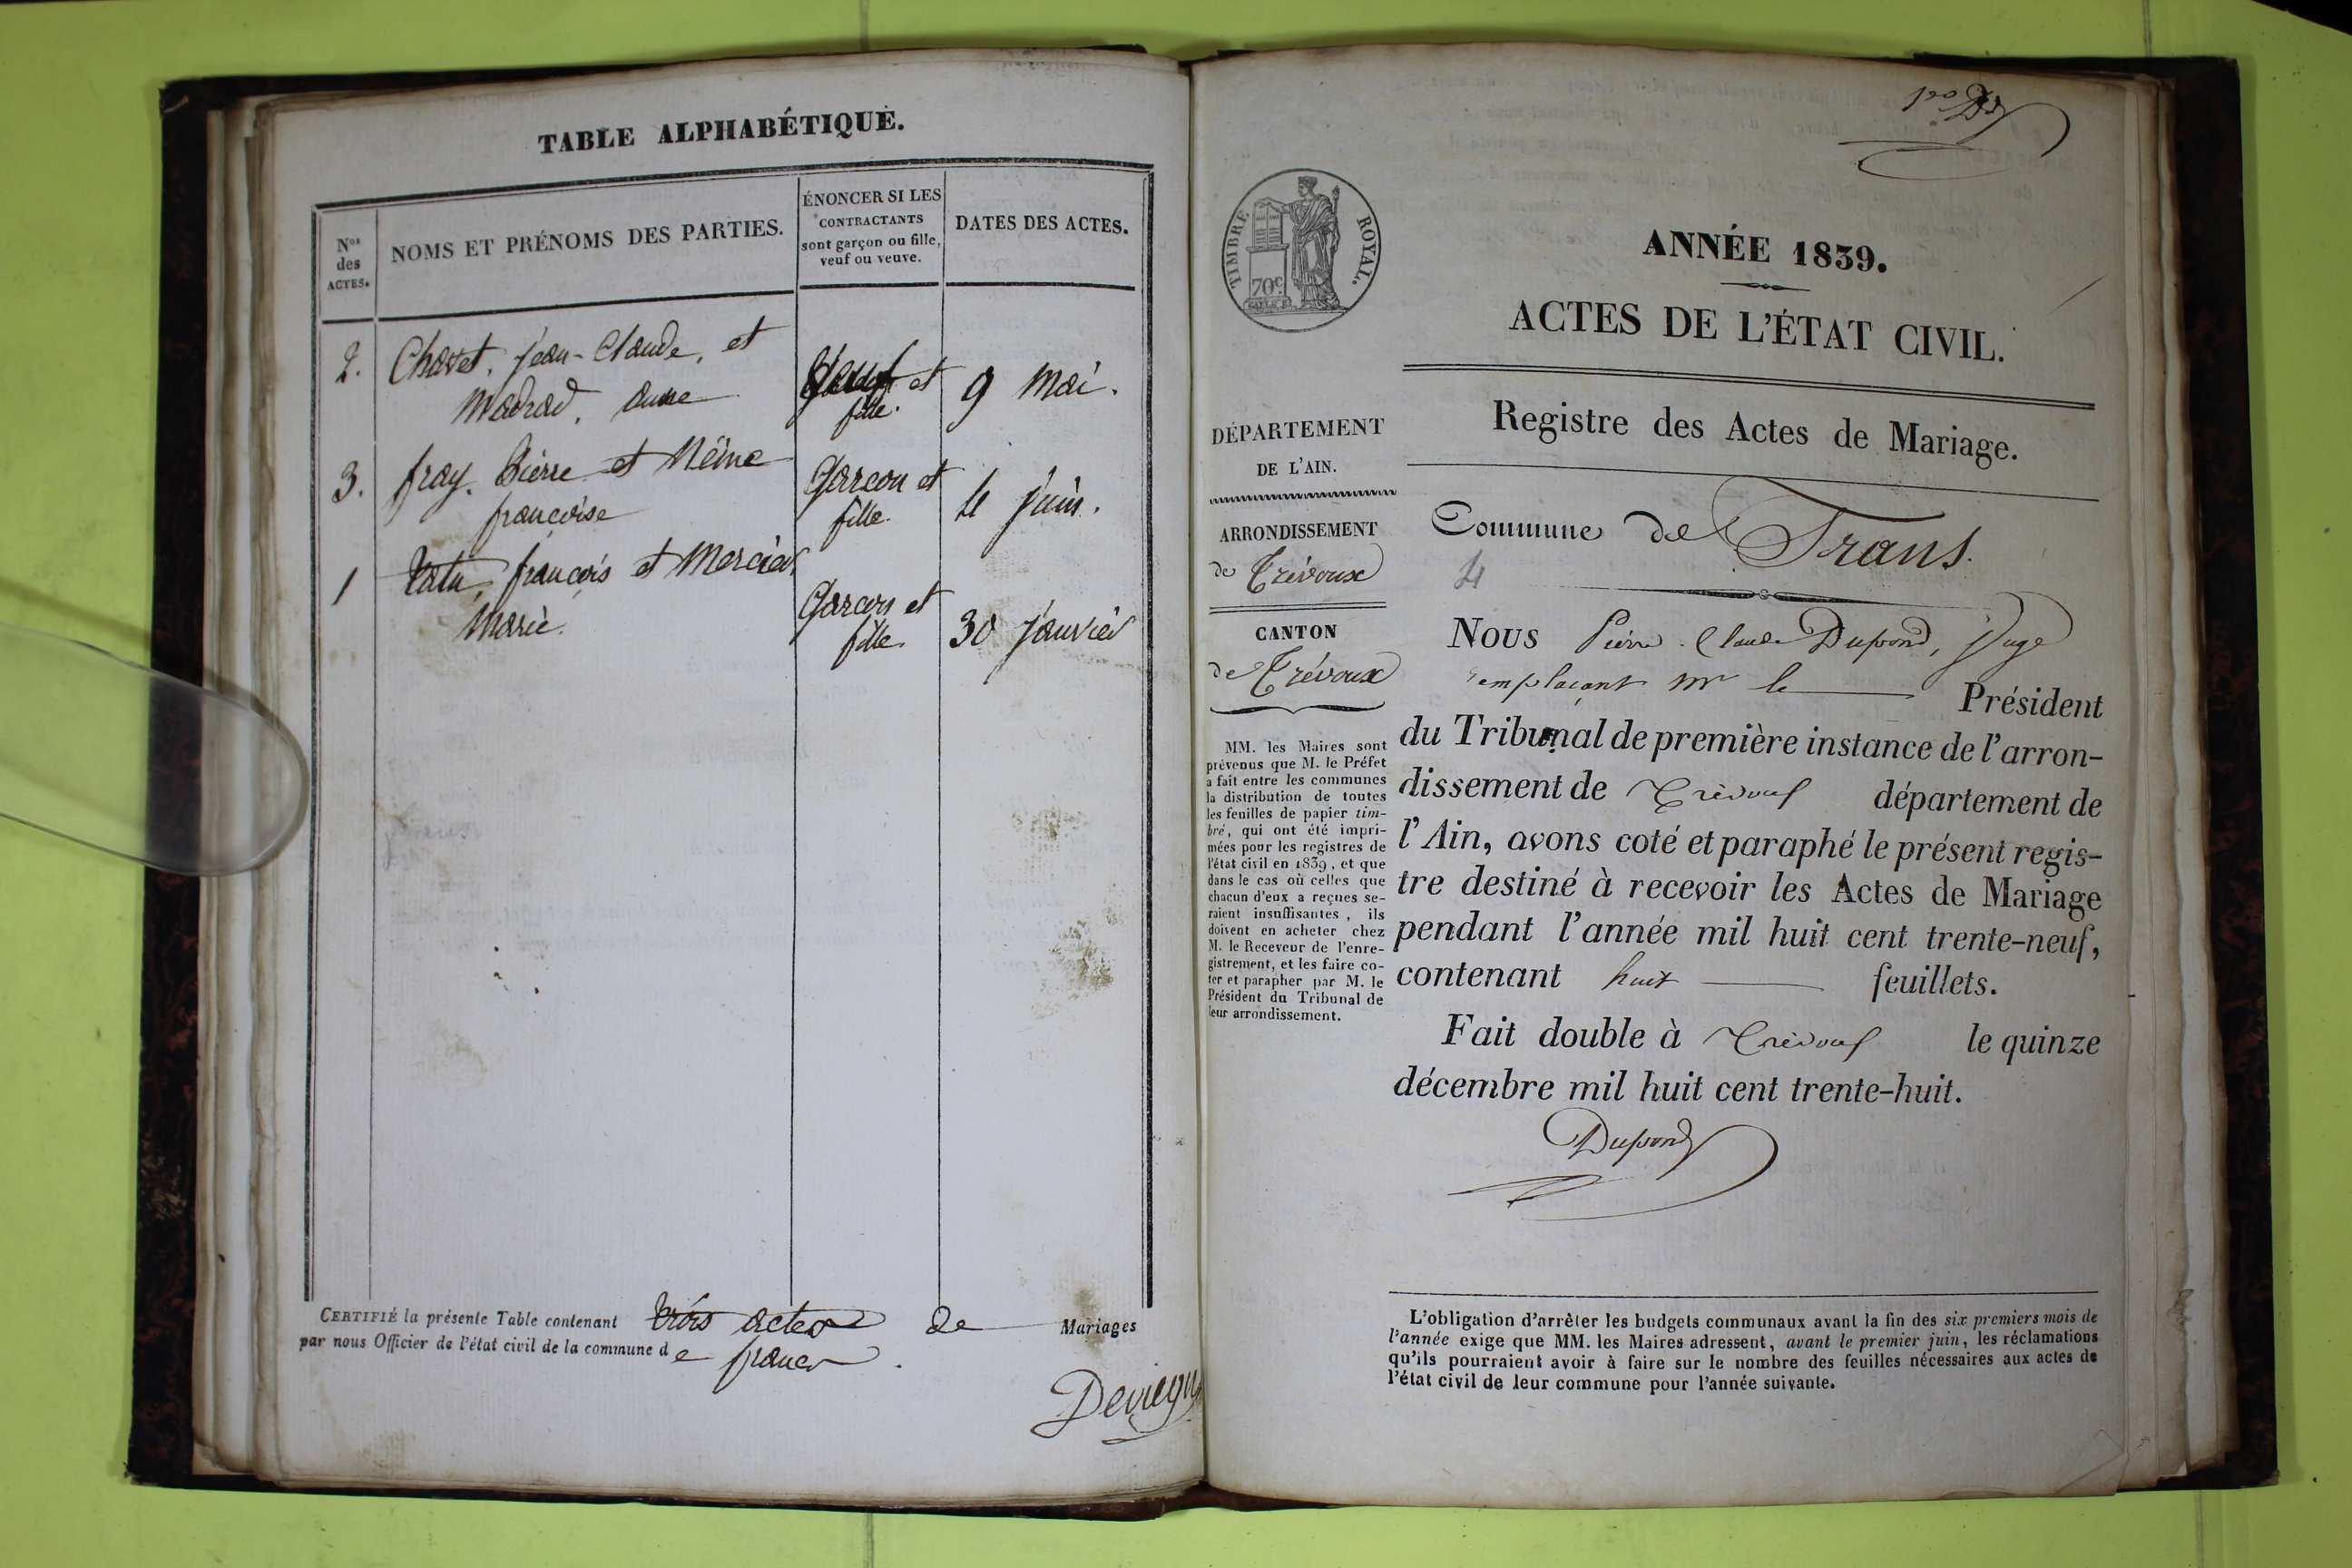 TABLE ALPHABÉTIQUE.
Nos
des
ACTES.
NOMS ET PRÉNOMS DES PARTIES.
ÉNONCER SI LES
CONTRACTANTS
sont garçon ou fille,
veuf ou veuve.
DATES DES ACTES.
2. Chavet, Jean-Claude, et
Madrad, Anne
et
fille.
9 Mai.
3. fray, Pierre et Néme
françoise
Garçon et
fille.
4 juin.
1 françois et Mercier
Marie.
Garçon et
fille
30 Janvier
CERTIFIÉ la présente Table contenant trois actes de Mariages
par nous Officier de l'état civil de la commune de francs.
1er
TIMBRE ROYAL.
70c
ANNÉE 1839.
ACTES DE L'ÉTAT CIVIL.
Registre des Actes de Mariage.
DÉPARTEMENT
DE L'AIN.
ARRONDISSEMENT
de Trévoux
CANTON
de Trévoux
MM. les Maires sont
prévenus que M. le Préfet
a fait entre les communes
la distribution de toutes
les feuilles de papier tim-
bré, qui ont été impri-
mées pour les registres de
l'état civil en 1839, et que
dans le cas où celles que
chacun d'eux a reçues se-
raient insuffisantes, ils
doivent en acheter chez
M. le Receveur de l'enre-
gistrement, et les faire co-
ter et parapher par M. le
Président du Tribunal de
leur arrondissement.
Commune de Frans.
4
Nous Pierre-Claude Dupond, Juge
remplaçant Mr le Président
du Tribunal de première instance de l'arron-
dissement de Trévoux département de
l'Ain, avons coté et paraphé le présent regis-
tre destiné à recevoir les Actes de Mariage
pendant l'année mil huit cent trente-neuf,
contenant huit feuillets.
Fait double à Trévoux le quinze
décembre mil huit cent trente-huit.
Dupond
L'obligation d'arrêter les budgets communaux avant la fin des six premiers mois de
l'année exige que MM. les Maires adressent, avant le premier juin, les réclamations
qu'ils pourraient avoir à faire sur le nombre des feuilles nécessaires aux actes de
l'état civil de leur commune pour l'année suivante.